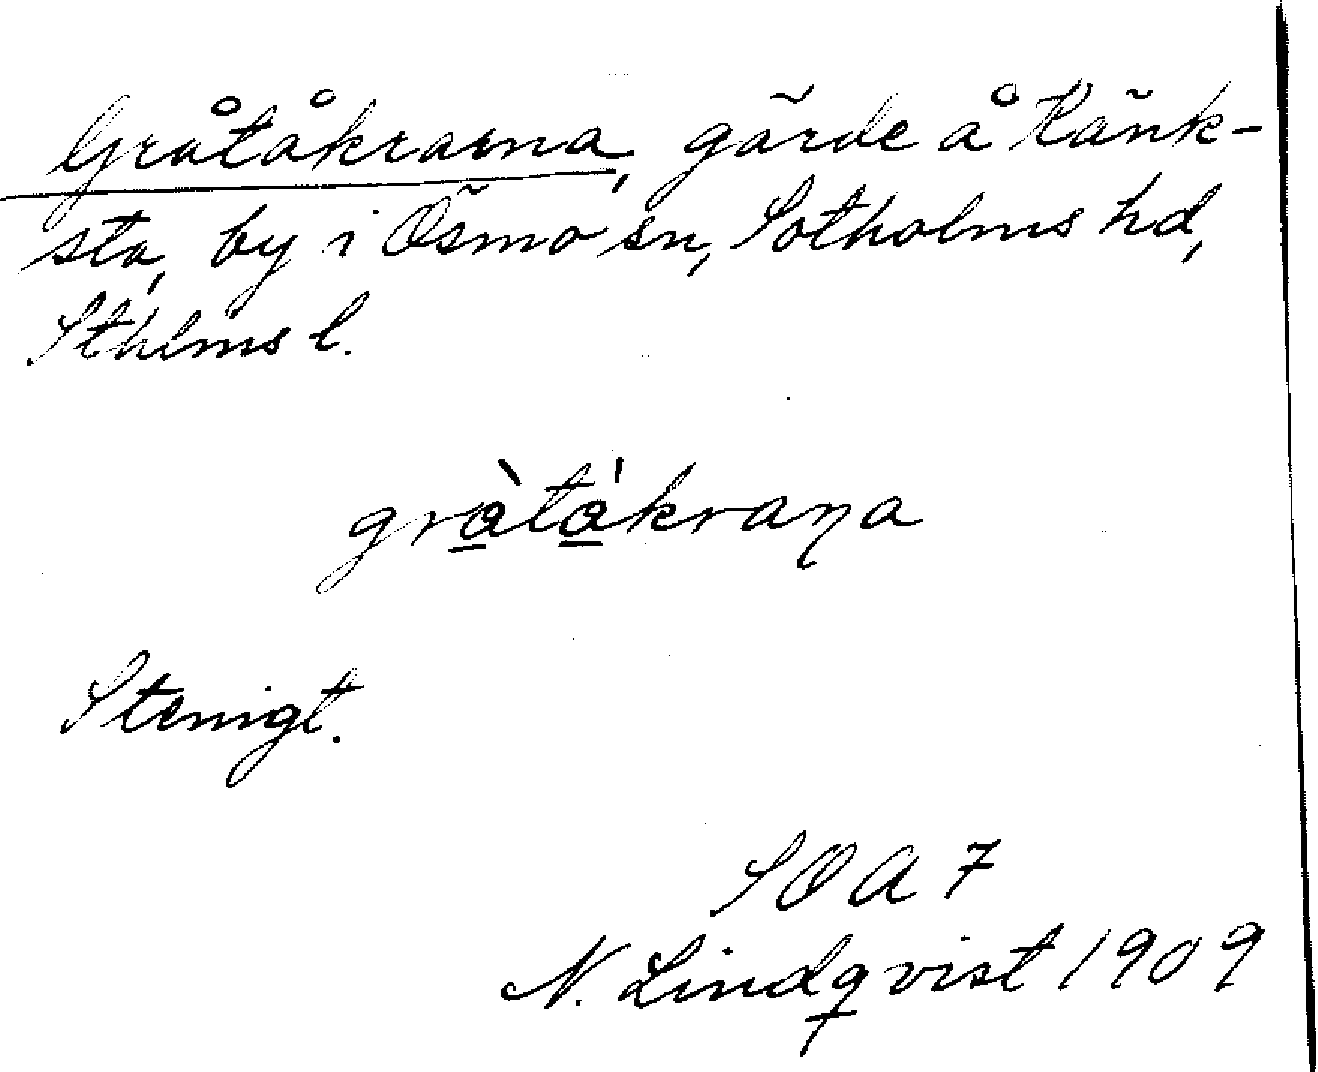 Gråtåkrarna, gärde å Känk-
sta, by i Ösmo sn, Sotholms hd,
Sthlms l.
gràtákraṇa
Stenigt.
SOA 7
N. Lindqvist 1909